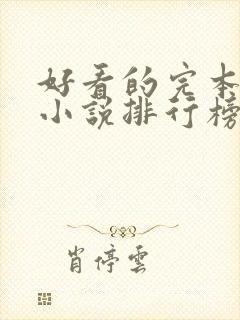 好看的完本
小說排行榜
肖停雲